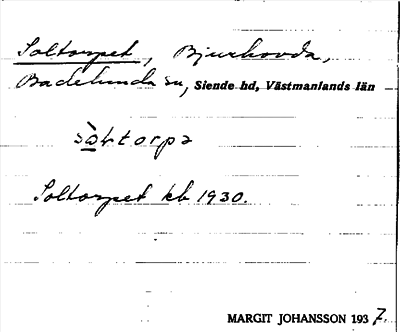 Soltorpet, Bjurhovda,
Badelunda sn, Siende hd, Västmanlands län
sɷ̀ltorpə
Soltorpet kb 1930.
MARGIT JOHANSSON 1937.